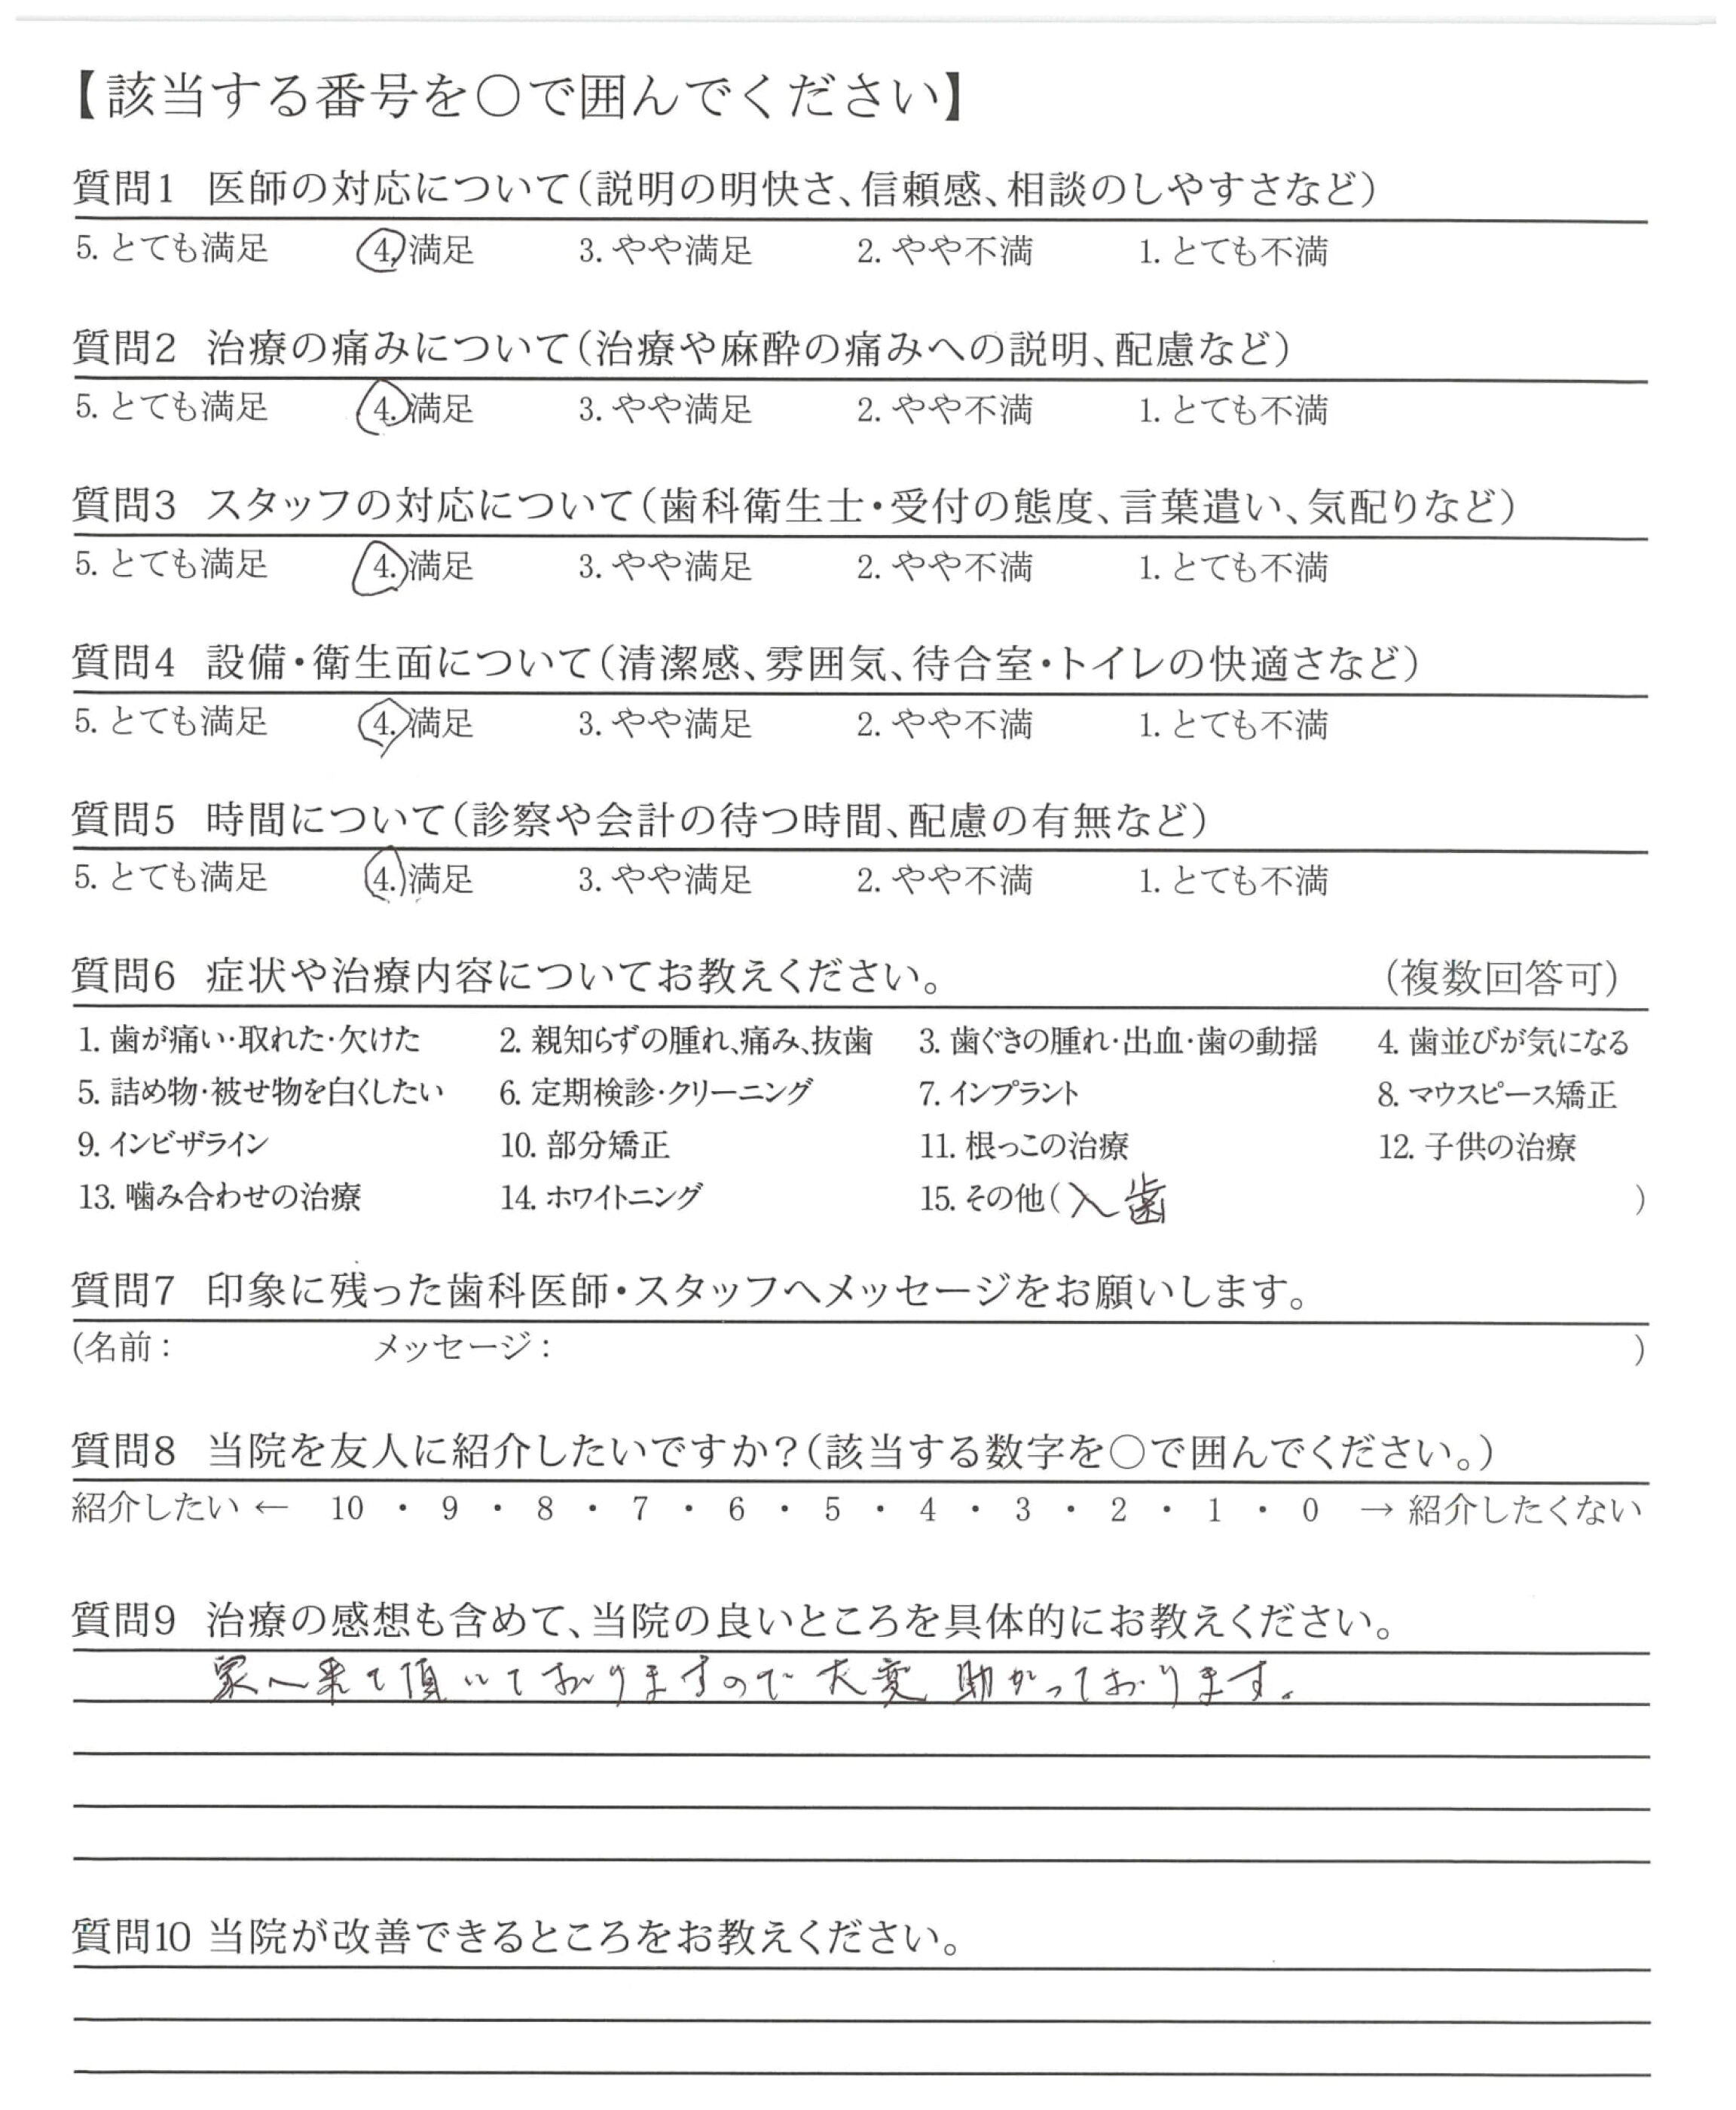 【該当する番号を○で囲んでください】
質問1 医師の対応について(説明の明快さ、信頼感、相談のしやすさなど)
5. とても満足 4. 満足 3. やや満足 2. やや不満 1. とても不満
質問2 治療の痛みについて(治療や麻酔の痛みへの説明、配慮など)
5. とても満足 4. 満足 3. やや満足 2. やや不満 1. とても不満
質問3 スタッフの対応について(歯科衛生士・受付の態度、言葉遣い、気配りなど)
5. とても満足 4. 満足 3. やや満足 2. やや不満 1. とても不満
質問4 設備・衛生面について(清潔感、雰囲気、待合室・トイレの快適さなど)
5. とても満足 4. 満足 3. やや満足 2. やや不満 1. とても不満
質問5 時間について(診察や会計の待つ時間、配慮の有無など)
5. とても満足 4. 満足 3. やや満足 2. やや不満 1. とても不満
質問6 症状や治療内容についてお教えください。 (複数回答可)
1. 歯が痛い・取れた・欠けた 2. 親知らずの腫れ、痛み、抜歯 3. 歯ぐきの腫れ・出血・歯の動揺 4. 歯並びが気になる
5. 詰め物・被せ物を白くしたい 6. 定期検診・クリーニング 7. インプラント 8. マウスピース矯正
9. インビザライン 10. 部分矯正 11. 根っこの治療 12. 子供の治療
13. 噛み合わせの治療 14. ホワイトニング 15. その他(入歯 )
質問7 印象に残った歯科医師・スタッフへメッセージをお願いします。
(名前: メッセージ: )
質問8 当院を友人に紹介したいですか?(該当する数字を○で囲んでください。)
紹介したい ← 10 ・ 9 ・ 8 ・ 7 ・ 6 ・ 5 ・ 4 ・ 3 ・ 2 ・ 1 ・ 0 → 紹介したくない
質問9 治療の感想も含めて、当院の良いところを具体的にお教えください。
家へ来て頂いておりますので大変助かっております。
質問10 当院が改善できるところをお教えください。